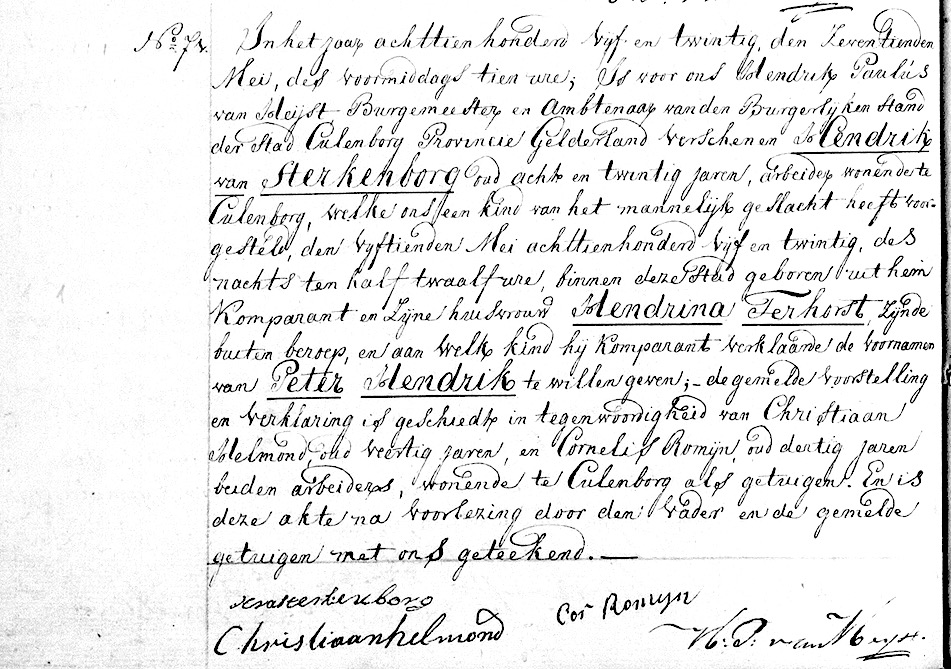 No. 74. In het jaar achttien honderd Vijf en twintig, den Zeventienden
Mei, des voormiddags tien ure; Is voor ons Hendrik Paulus
van Heijst Burgemeester en Ambtenaar van den Burgerlijken Stand
der Stad Culenborg Provincie Gelderland verschenen Hendrik
van Sterkenborg oud acht en twintig jaren, arbeider wonende te
Culenborg, welke ons een kind van het mannelijk geslacht heeft voor-
gesteld, den vijftienden Mei achttienhonderd Vijf en twintig, des
nachts ten half twaalf ure, binnen deze Stad geboren uit hem
Komparant en Zijne huisvrouw Hendrina Terhorst, zijnde
buiten beroep, en aan welk kind hij Komparant verklaarde de voornamen
van Peter Hendrik te willen geven; - de gemelde Voorstelling
en verklaring is geschiedt in tegenwoordigheid van Christiaan
Helmond, oud veertig jaren, en Cornelis Romijn, oud dertig jaren
beiden arbeiders, wonende te Culenborg als getuigen. En is
deze akte na voorlezing door den Vader en de gemelde
getuigen met ons geteekend. —
Cor Romijn
Christiaan helmond
H. P. van Heijst.